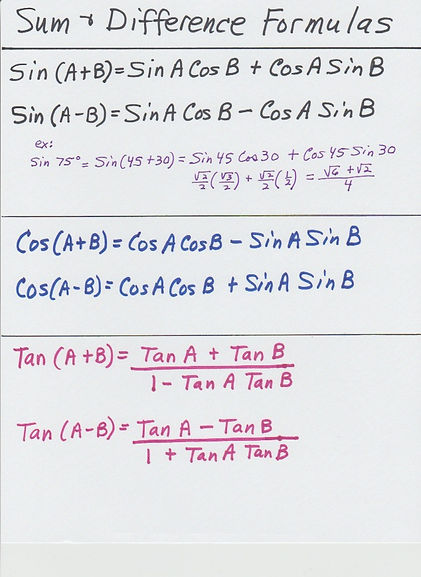 Sum & Difference Formulas
Sin (A+B)=Sin A Cos B + Cos A Sin B
Sin (A-B)=Sin A Cos B - Cos A Sin B
ex:
Sin 75°= Sin (45+30) = Sin 45 Cos 30 + Cos 45 Sin 30
√2/2(√3/2) + √2/2(1/2) = √6+√2/4
Cos(A+B)= Cos A Cos B - Sin A Sin B
Cos(A-B)= Cos A Cos B + Sin A Sin B
Tan (A+B)= Tan A + Tan B
1- Tan A Tan B
Tan (A-B)= Tan A - Tan B
1 + Tan A Tan B